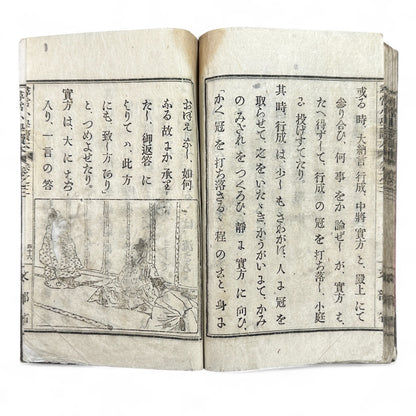 或る時、大納言行成、中將實方と、殿上にて
參り合ひ、何事をか論ぜしが、實方、
たへ得ずして、行成の冠を打ち落し、小庭
に投げすてたり。
其時、行成は、少しもさわがず、人に冠を
取らせて、之をいたゞき、かうがいにて、かみ
のみだれをつくろひ、靜に實方に向ひ、
かく冠を打ち落さるゝ程のこと、身に
おぼえなし、如何
なる故にか承り
たし、御返答に
よりて、此方
にも致し方あり
と、つめよせたり。
實方は、大にはぢ
入り、一言の答
五十六
文部省